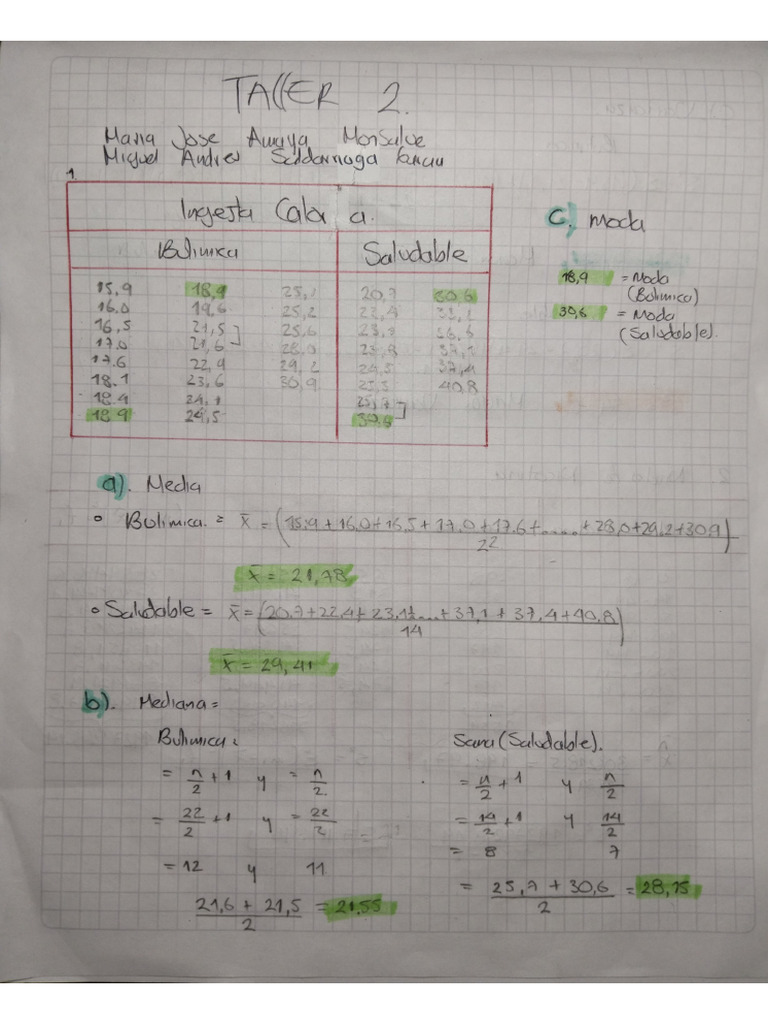 TAllER 2.
Maria Jose Amaya Monsalve
Miguel Andres
1.
Ingesta Calor a.
Bulimica Saludable
15.9 18,9 25,1 20,7 30,6
16.0 19,6 25,2 22,4 33,2
16,5 21,5 25,6 23,1 36,6
17.0 21,6 28,0 23,8 37,1
17.6 22,9 29,2 24,5 37,4
18.1 23,6 30,9 25,3 40,8
18.4 24,1 25,7
18.9 24,5 30,6
c) moda
18,9 = Moda
(Bulimica)
30,6 = Moda
(Saludable).
a). Media
Bulimica. = x̄ = (15.9+16.0+16,5+17.0+17.6+.....+28,0+29,2+30,9)
22
x̄ = 21,78
Saludable = x̄ = (20,7+22,4+23,1+...+37,1+37,4+40,8)
14
x̄ = 29,41
b). Mediana =
Bulimica =
= n/2 + 1 y = n/2
= 22/2 + 1 y = 22/2
= 12 y 11
21,6 + 21,5 / 2 = 21,55
Sana (Saludable).
= n/2 + 1 y n/2
= 14/2 + 1 y 14/2
= 8 7
= 25,7 + 30,6 / 2 = 28,15